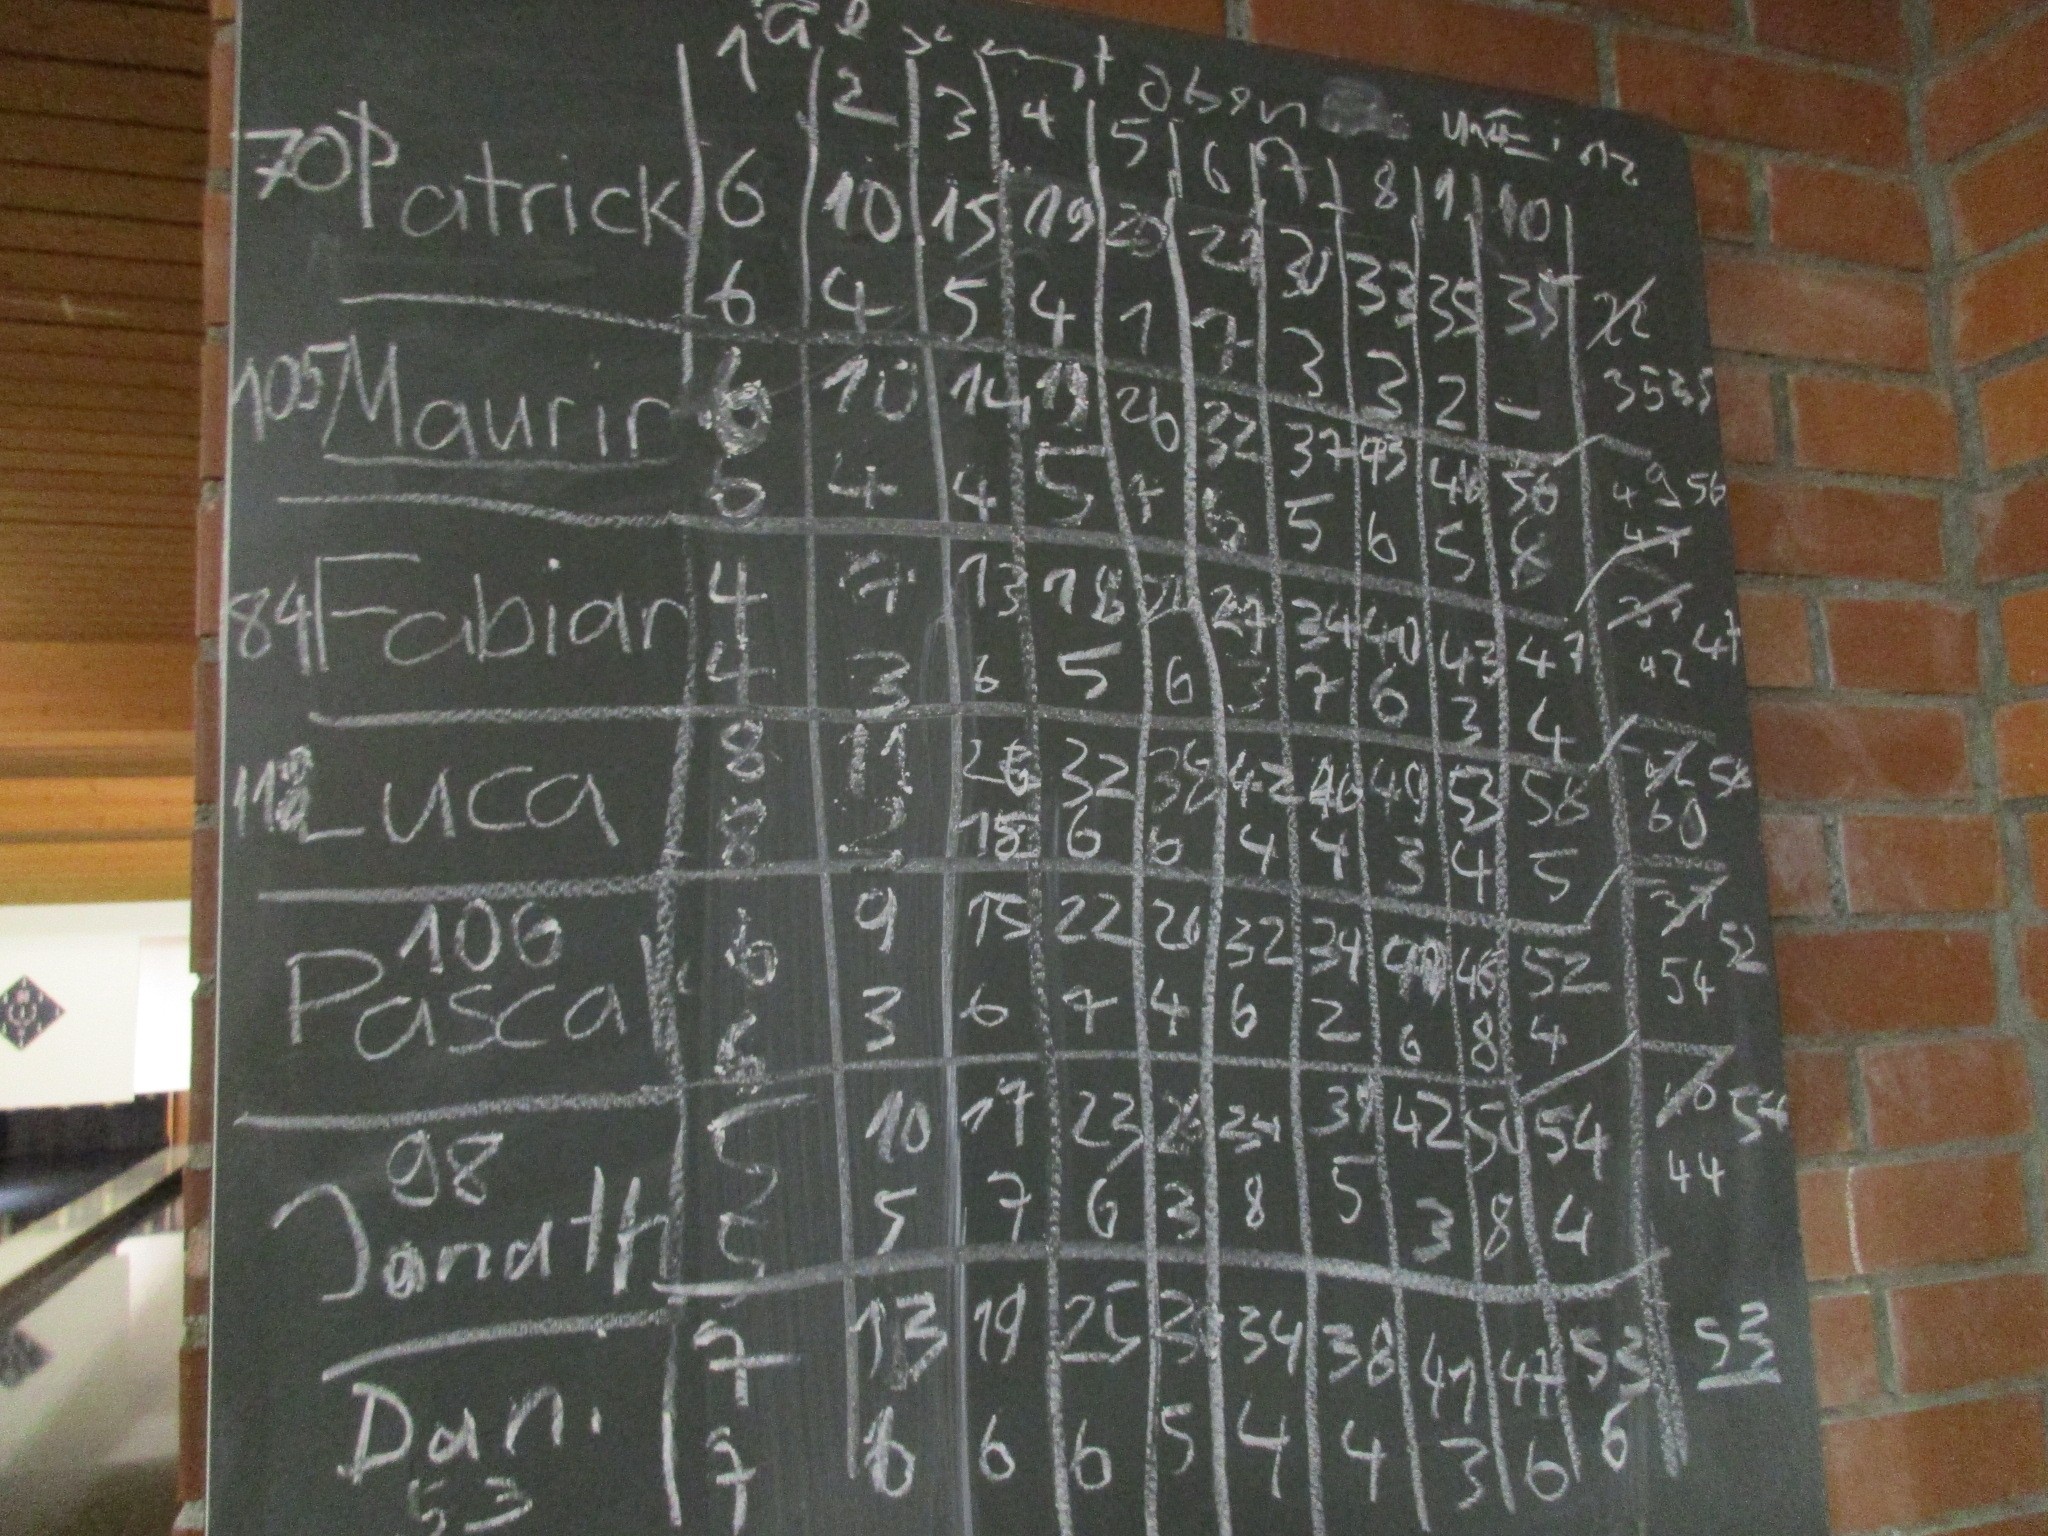 oben
1 2 3 4 5 6 7 8 9 10
70 Patrick 6 10 15 19 20 30 33 35 35
6 4 5 4 1 7 3 3 2 – 35 35
105 Maurin 6 10 14 19 26 32 37 43 48 56 49 56
6 4 4 5 7 6 5 6 5 8
84 Fabian 4 7 13 18 24 27 34 40 43 47 47
4 3 6 5 6 3 7 6 3 4 42
Luca 8 11 26 32 38 42 46 49 53 58 58
8 3 15 6 6 4 4 3 4 5 60
106
Pascal 6 9 15 22 26 32 34 40 48 52 52
6 3 6 7 4 6 2 6 8 4 54
98 5 10 17 23 26 34 39 42 50 54 54
Jonath 5 5 7 6 3 8 5 3 8 4 44
Dani 7 13 19 25 30 34 38 41 47 53 53
53 7 6 6 6 5 4 4 3 6 6